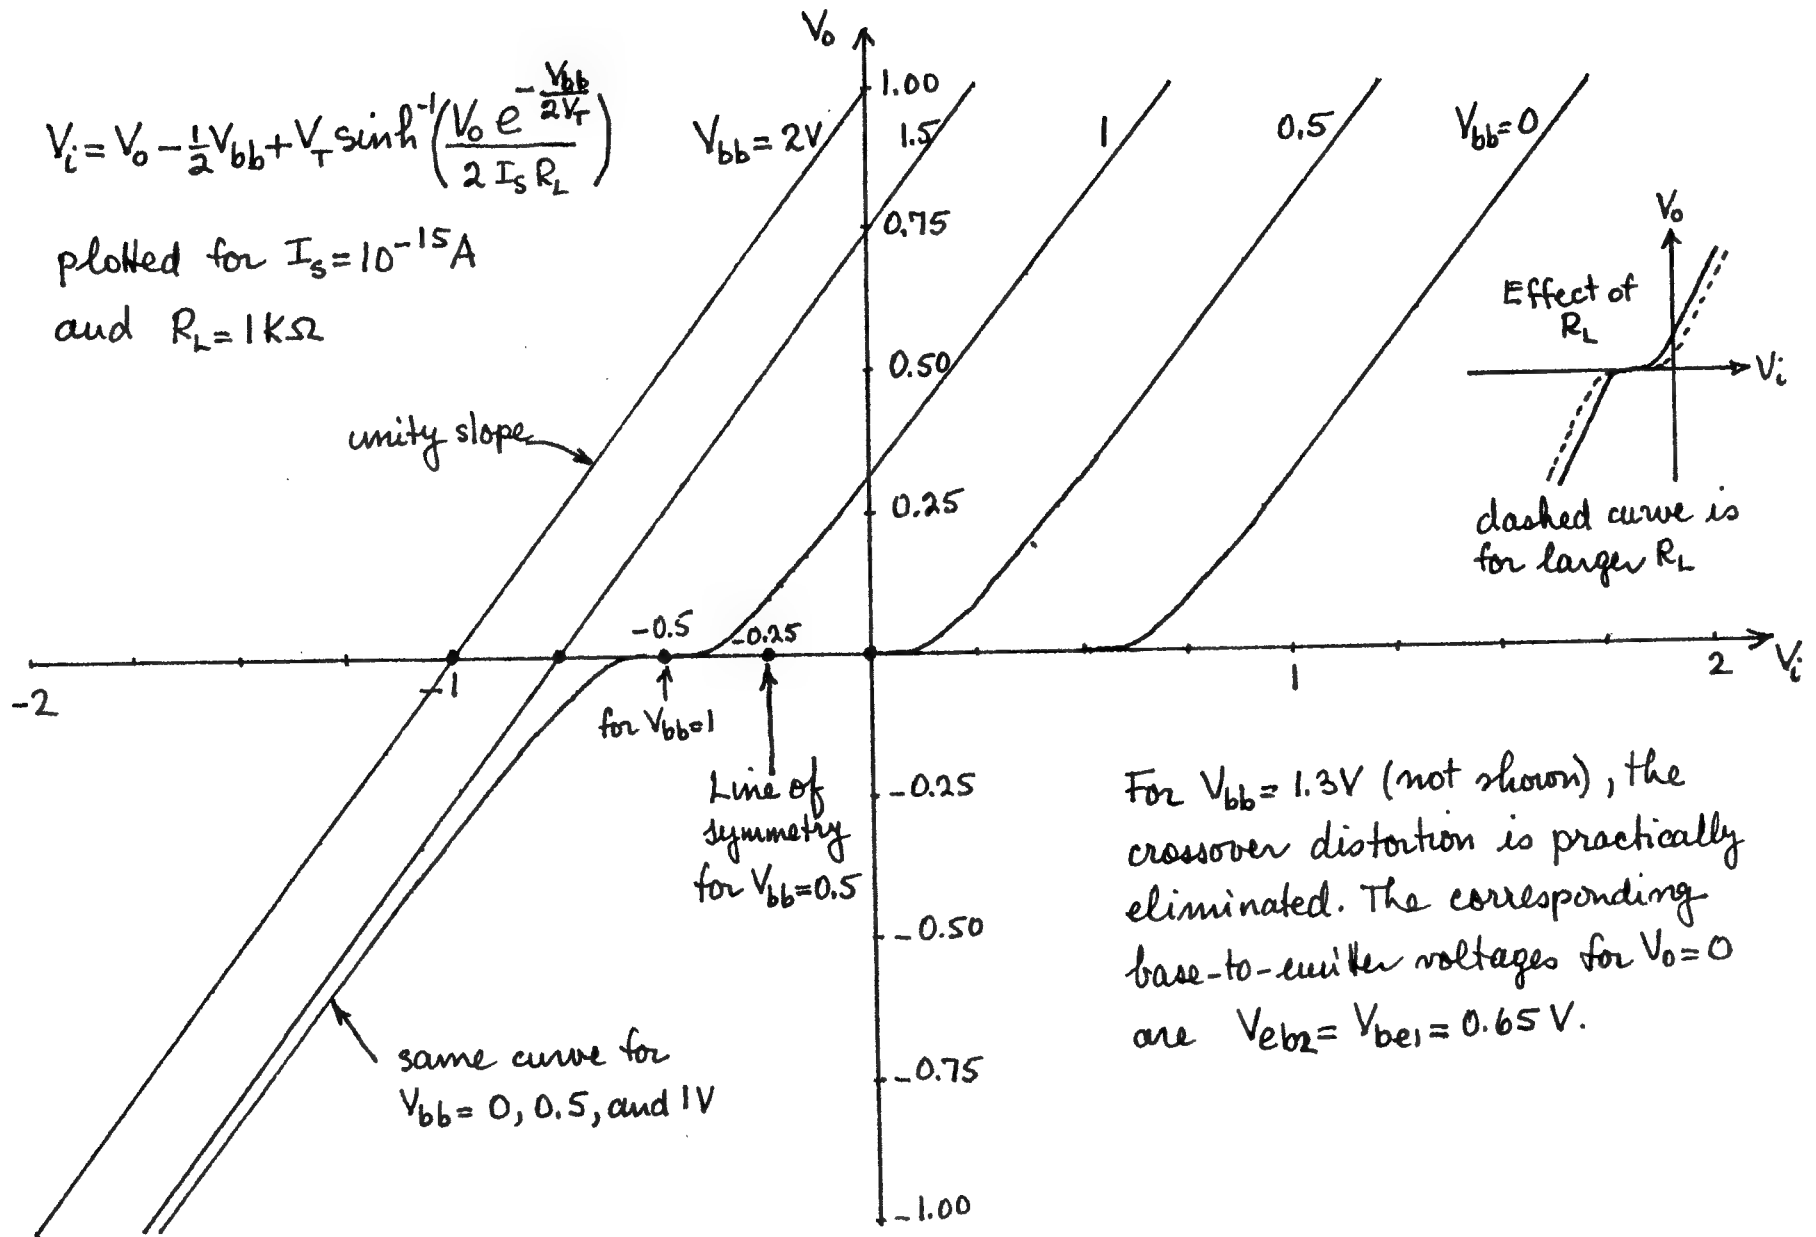 V₀
Vᵢ = V₀ - ½V_bb + V_T sinh⁻¹(V₀ e^(-V_bb/2V_T) / 2 I_S R_L)
plotted for I_S = 10⁻¹⁵ A
and R_L = 1 KΩ
V_bb = 2V
1.5
1
0.5
V_bb = 0
1.00
0.75
0.50
0.25
unity slope
V₀
Effect of
R_L
Vᵢ
dashed curve is
for larger R_L
-2
-1
-0.5
-0.25
1
2
Vᵢ
for V_bb=1
Line of
symmetry
for V_bb=0.5
-0.25
-0.50
-0.75
-1.00
For V_bb = 1.3V (not shown), the
crossover distortion is practically
eliminated. The corresponding
base-to-emitter voltages for V₀=0
are V_eb2 = V_be1 = 0.65 V.
same curve for
V_bb = 0, 0.5, and 1V